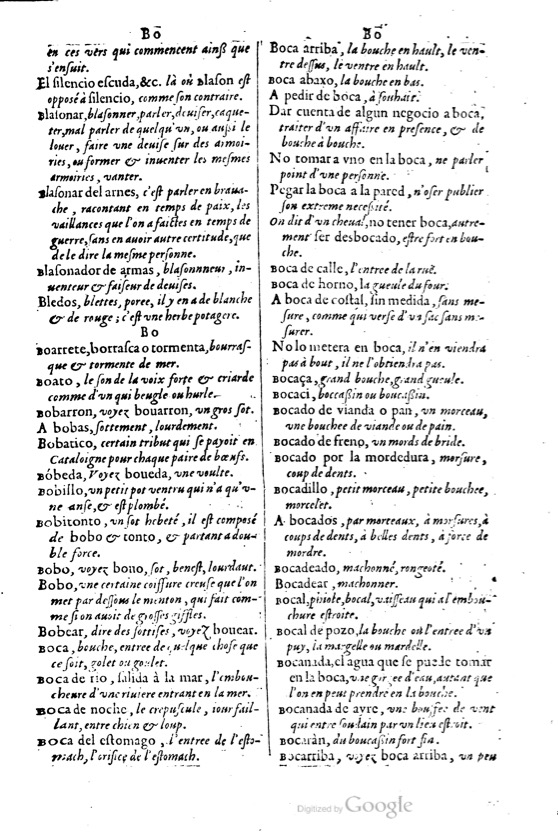 BO
en ces vers qui commencent ainſi que
s'enſuit.
El ſilencio eſcuda,&c. là où Blaſon eſt
oppoſé à ſilencio, comme ſon contraire.
Blaſonar, blaſonner, parler, deuiſer, caque-
ter, mal parler de quelqu'vn, ou auſſi le
louer, faire vne deuiſe ſur des armoi-
ries, ou former & inuenter les meſmes
armoiries, vanter.
Blaſonar del arnes, c'eſt parler en braua-
che, racontant en temps de paix, les
vaillances que l'on a faictes en temps de
guerre, ſans en auoir autre certitude, que
de le dire la meſme perſonne.
Blaſonador de armas, blaſonneur, in-
uenteur & faiſeur de deuiſes.
Bledos, blettes, poree, il y en a de blanche
& de rouge; c'eſt vne herbe potagere.
BO
Boarrete, borraſca o tormenta, bourraſ-
que & tormente de mer.
Boato, le ſon de la voix forte & criarde
comme d'vn qui beugle ou hurle.
Bobarron, voyez bouarron, vn gros ſot.
A bobas, ſottement, lourdement.
Bobatico, certain tribut qui ſe payoit en
Cataloigne pour chaque paire de bœufs.
Bóbeda, Voyez boueda, vne voulte.
Bobillo, vn petit pot ventru qui n'a qu'v-
ne anſe, & eſt plombé.
Bobitonto, vn ſot hebeté, il eſt compoſé
de bobo & tonto, & partant a dou-
ble force.
Bobo, voyez bono, ſot, beneſt, lourdaut.
Bobo, vne certaine coiffure creuſe que l'on
met par deſſous le menton, qui fait com-
me ſi on auoit de groſſes giffles.
Bobear, dire des ſottiſes, voyez bouear.
Boca, bouche, entree de quelque choſe que
ce ſoit, golet ou goulet.
Boca de rio, ſalida à la mar, l'embou-
cheure d'vne riuiere entrant en la mer.
Boca de noche, le crepuſcule, iour fail-
lant, entre chien & loup.
Boca del eſtomago, l'entree de l'eſto-
mach, l'orifice de l'eſtomach.
BO
Boca arriba, la bouche en hault, le ven-
tre deſſus, le ventre en hault.
Boca abaxo, la bouche en bas.
A pedir de boca, à ſouhait.
Dar cuenta de algun negocio a boca,
traiter d'vn affaire en preſence, & de
bouche à bouche.
No tomar a vno en la boca, ne parler
point d'vne perſonne.
Pegar la boca a la pared, n'oſer publier
ſon extreme neceſſité.
On dit d'vn cheual, no tener boca, autre-
ment ſer desbocado, eſtre fort en bou-
che.
Boca de calle, l'entree de la ruë.
Boca de horno, la gueule du four.
A boca de coſtal, ſin medida, ſans me-
ſure, comme qui verſe d'vn ſac ſans me-
ſurer.
No lo metera en boca, il n'en viendra
pas à bout, il ne l'obtiendra pas.
Bocaça, grand bouche, grand gueule.
Bocaci, boccaſſin ou boucaſſin.
Bocado de vianda o pan, vn morceau,
vne bouchee de viande ou de pain.
Bocado de freno, vn mords de bride.
Bocado por la mordedura, morſure,
coup de dents.
Bocadillo, petit morceau, petite bouchee,
morcelet.
A bocados, par morteaux, à morſures, à
coups de dents, à belles dents, à force de
mordre.
Bocadeado, machonné, rongeoté.
Bocadear, machonner.
Bocal, phiole, bocal, vaiſſeau qui a l'embou-
chure eſtroite.
Bocal de pozo, la bouche ou l'entree d'vn
puy, la margelle ou mardelle.
Bocanada, el agua que ſe puede tomar
en la boca, vne gorgee d'eau, autant que
l'on en peut prendre en la bouche.
Bocanada de ayre, vne bouffee de vent
qui entre ſoudain par vn lieu eſtroit.
Bocaràn, du boucaſſin fort fin.
Bocarriba, voyez boca arriba, vn peu
Digitized by Google